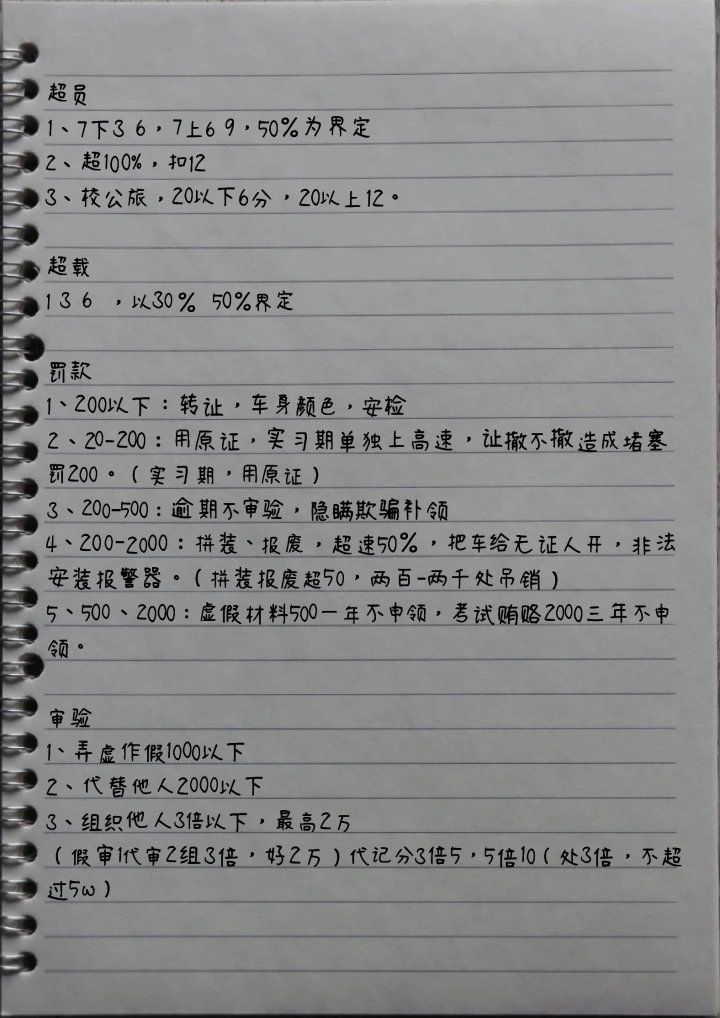 超员
1、7下3 6，7上6 9，50%为界定
2、超100%，扣12
3、校公旅，20以下6分，20以上12。
超载
1 3 6 ，以30% 50%界定
罚款
1、200以下：转让，车身颜色，安检
2、20-200：用原证，实习期单独上高速，让撤不撤造成堵塞
罚200。（实习期，用原证）
3、200-500：逾期不审验，隐瞒欺骗补领
4、200-2000：拼装、报废，超速50%，把车给无证人开，非法
安装报警器。（拼装报废超50，两百-两千处吊销）
5、500、2000：虚假材料500一年不申领，考试贿赂2000三年不申
领。
审验
1、弄虚作假1000以下
2、代替他人2000以下
3、组织他人3倍以下，最高2万
（假审1代审2组3倍，好2万）代记分3倍5，5倍10（处3倍，不超
过5w）